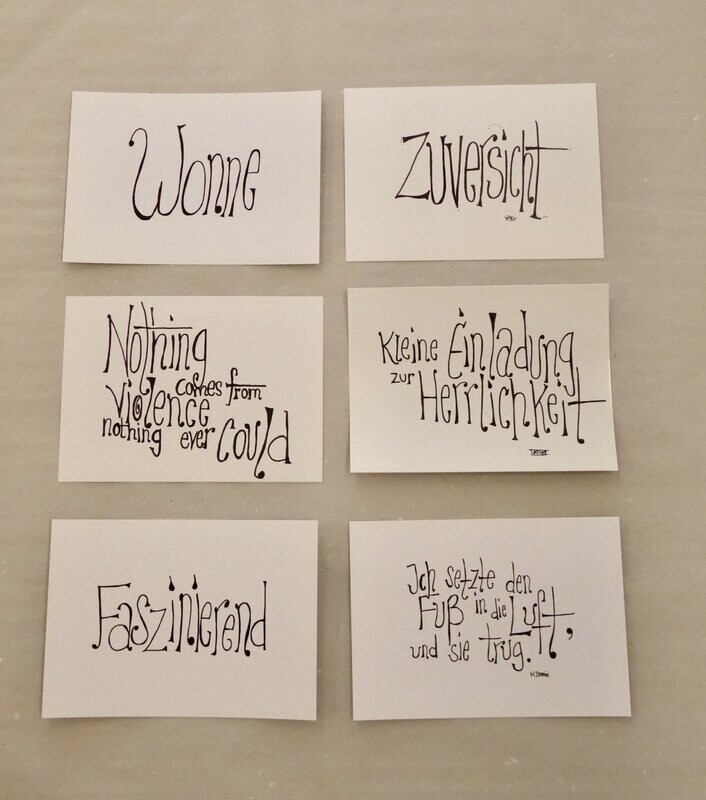 Wonne
Zuversicht
Nothing
comes from
violence
nothing ever could
Kleine Einladung
zur Herrlichkeit
Faszinierend
Ich setzte den
Fuß in die Luft,
und sie trug.
H. Domin